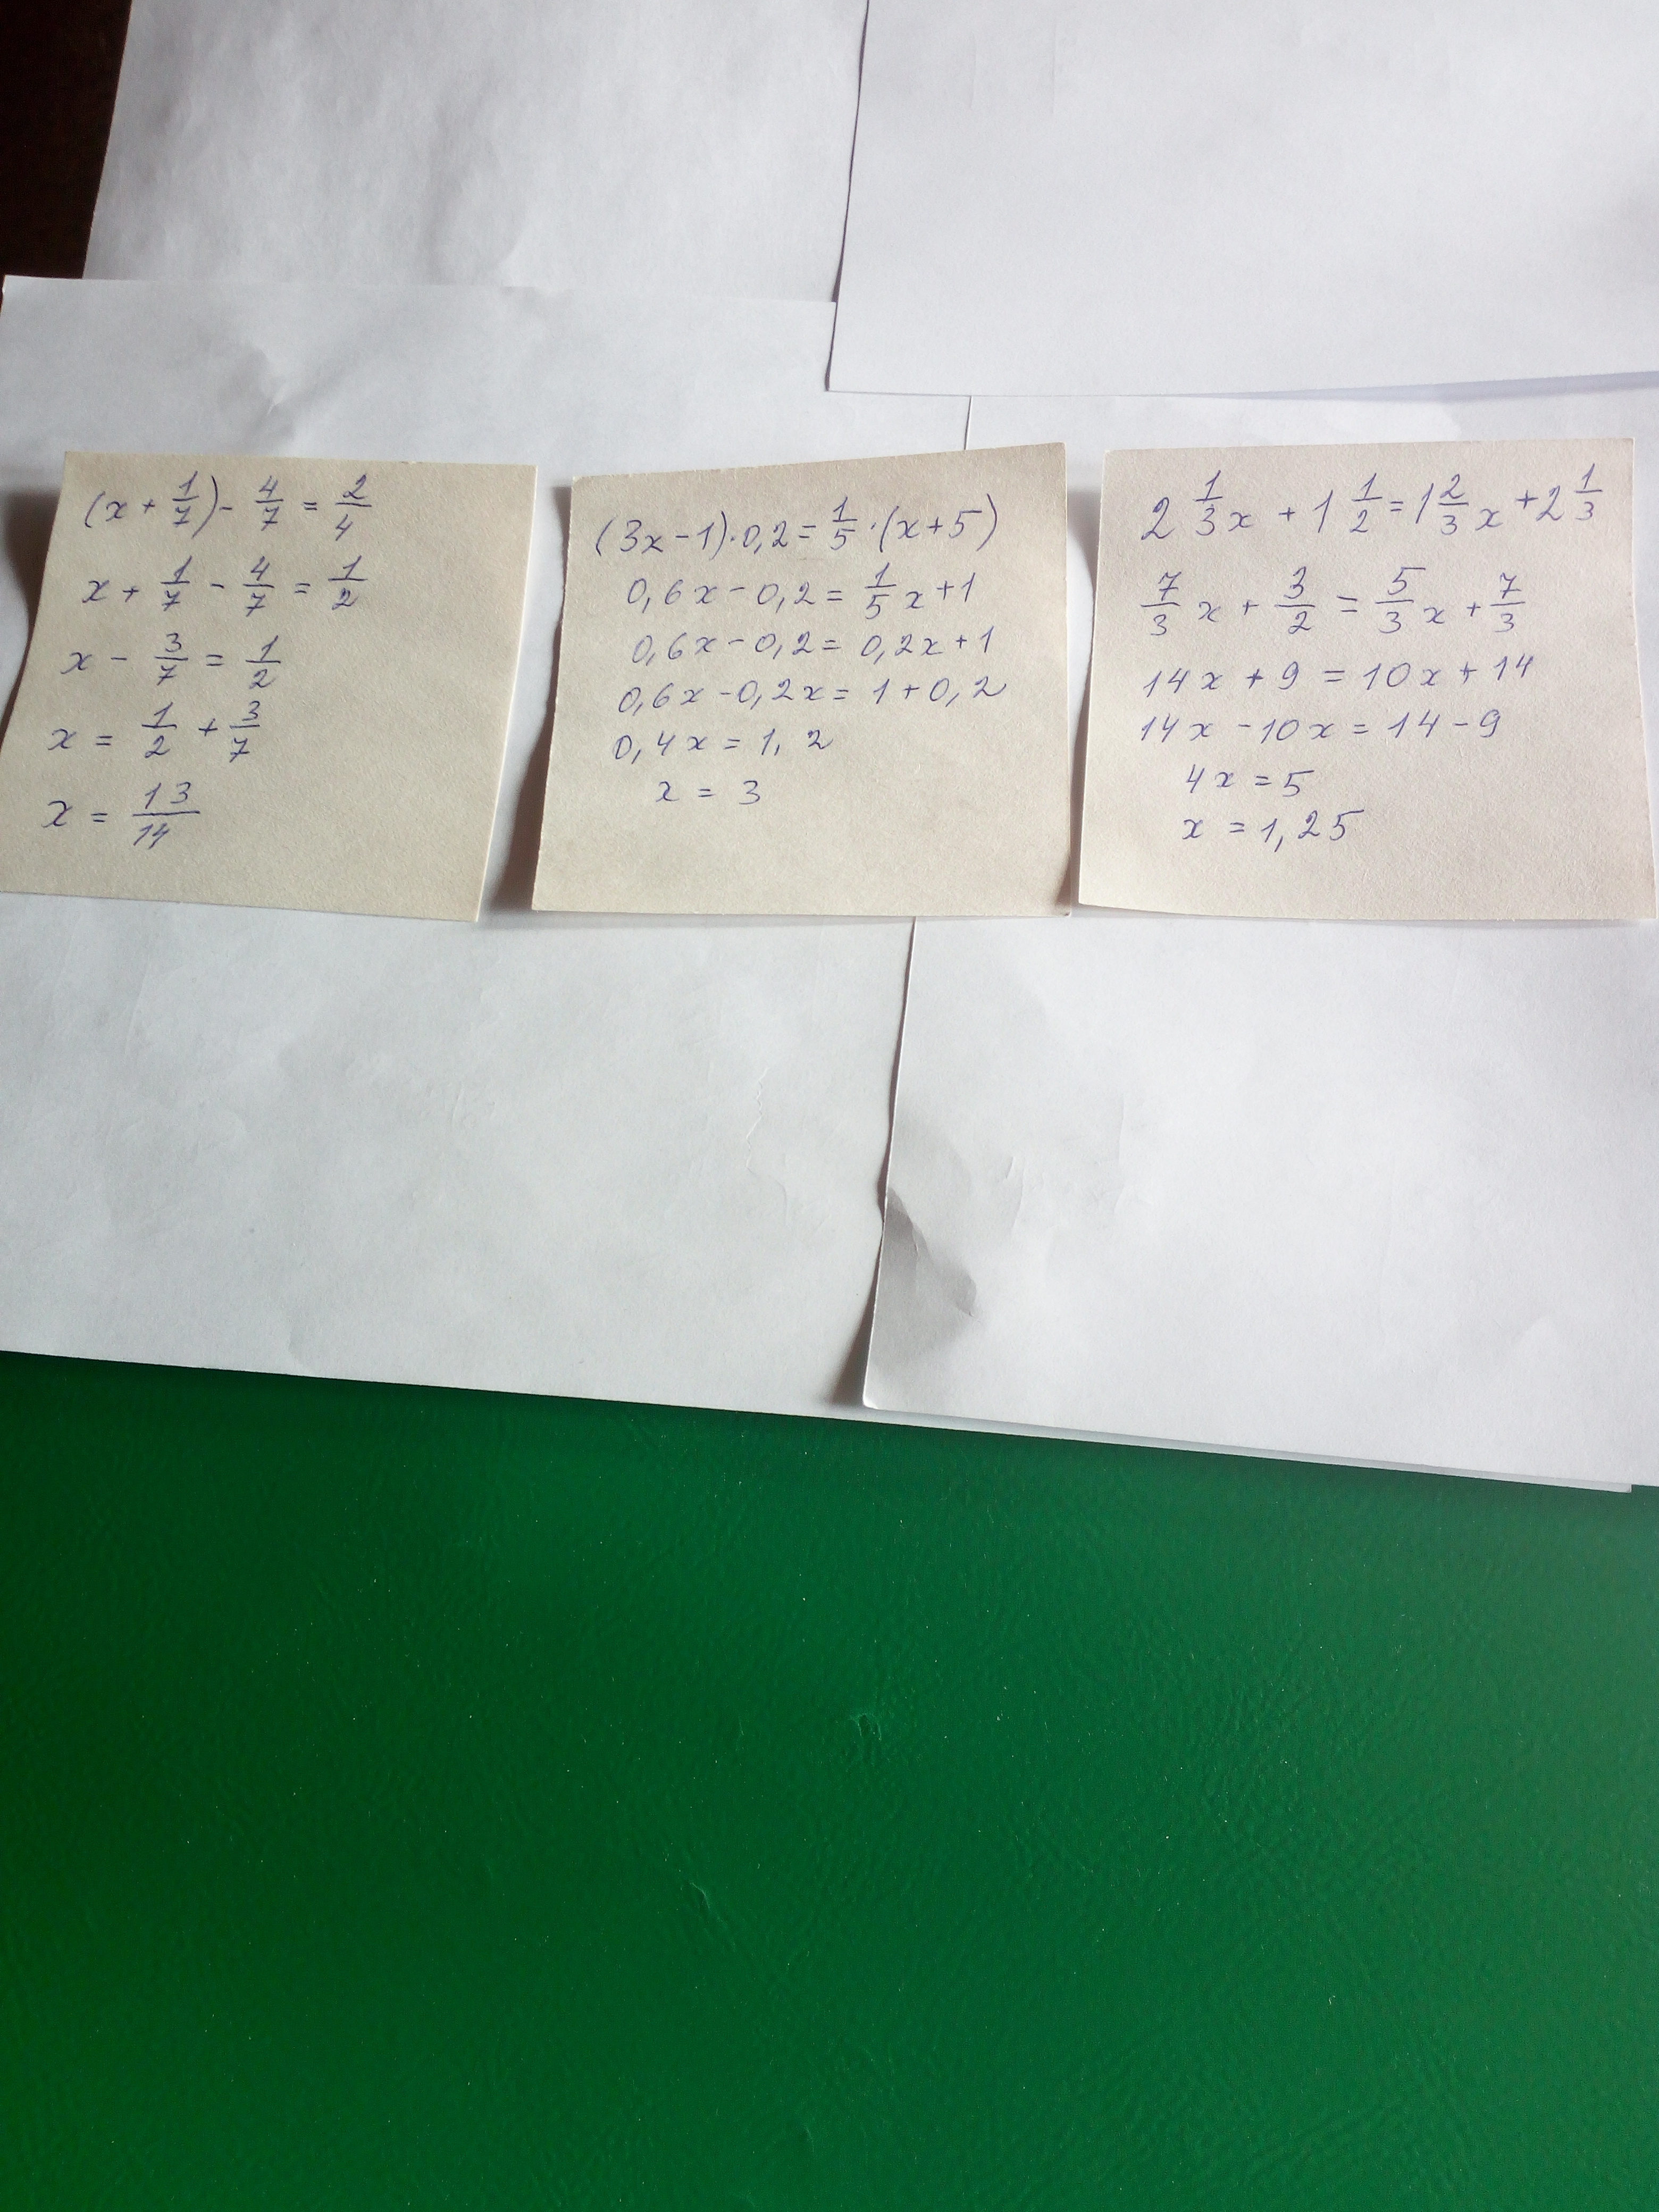 (x + 1/7) - 4/7 = 2/4
x + 1/7 - 4/7 = 1/2
x - 3/7 = 1/2
x = 1/2 + 3/7
x = 13/14
(3x - 1) · 0,2 = 1/5 · (x + 5)
0,6x - 0,2 = 1/5 x + 1
0,6x - 0,2 = 0,2x + 1
0,6x - 0,2x = 1 + 0,2
0,4x = 1,2
x = 3
2 1/3 x + 1 1/2 = 1 2/3 x + 2 1/3
7/3 x + 3/2 = 5/3 x + 7/3
14x + 9 = 10x + 14
14x - 10x = 14 - 9
4x = 5
x = 1,25